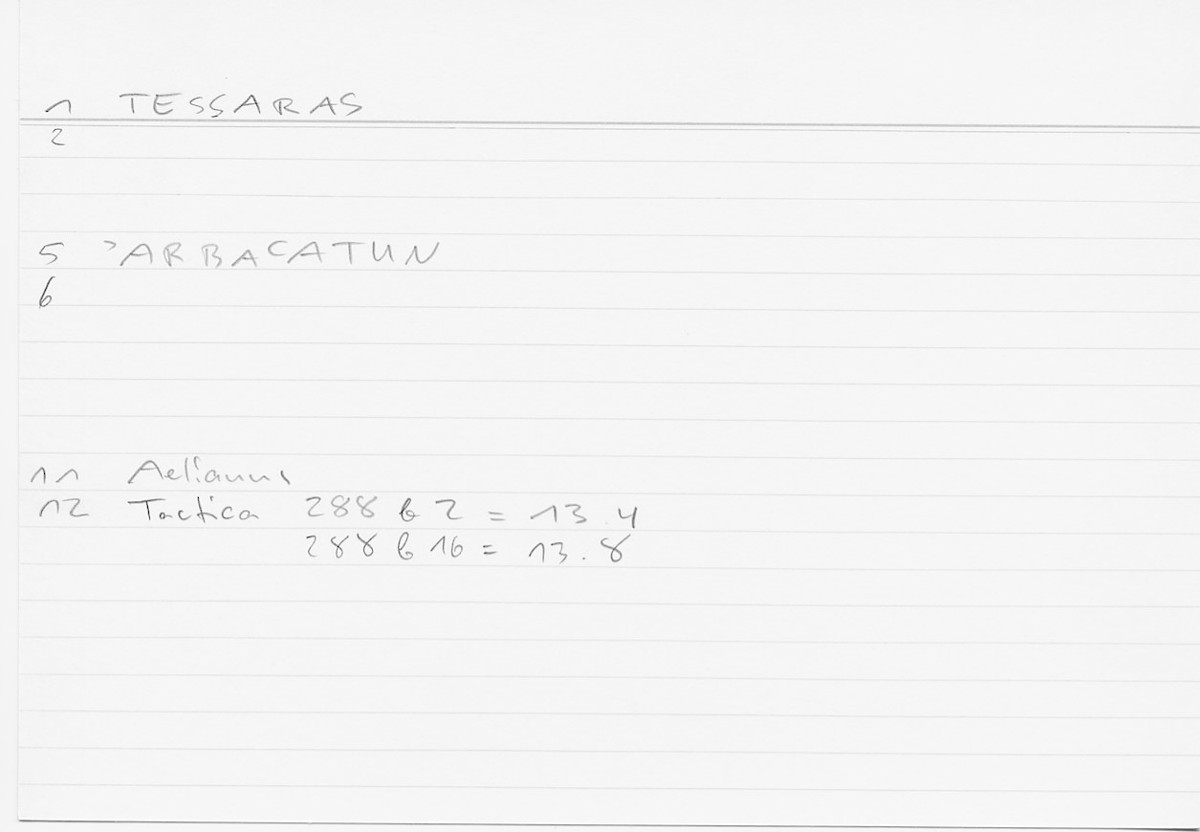 1 TESSARAS
2
5 ʾARBAꜤATUN
6
11 Aelianus
12 Tactica 288 b 2 = 13.4
288 b 16 = 13.8